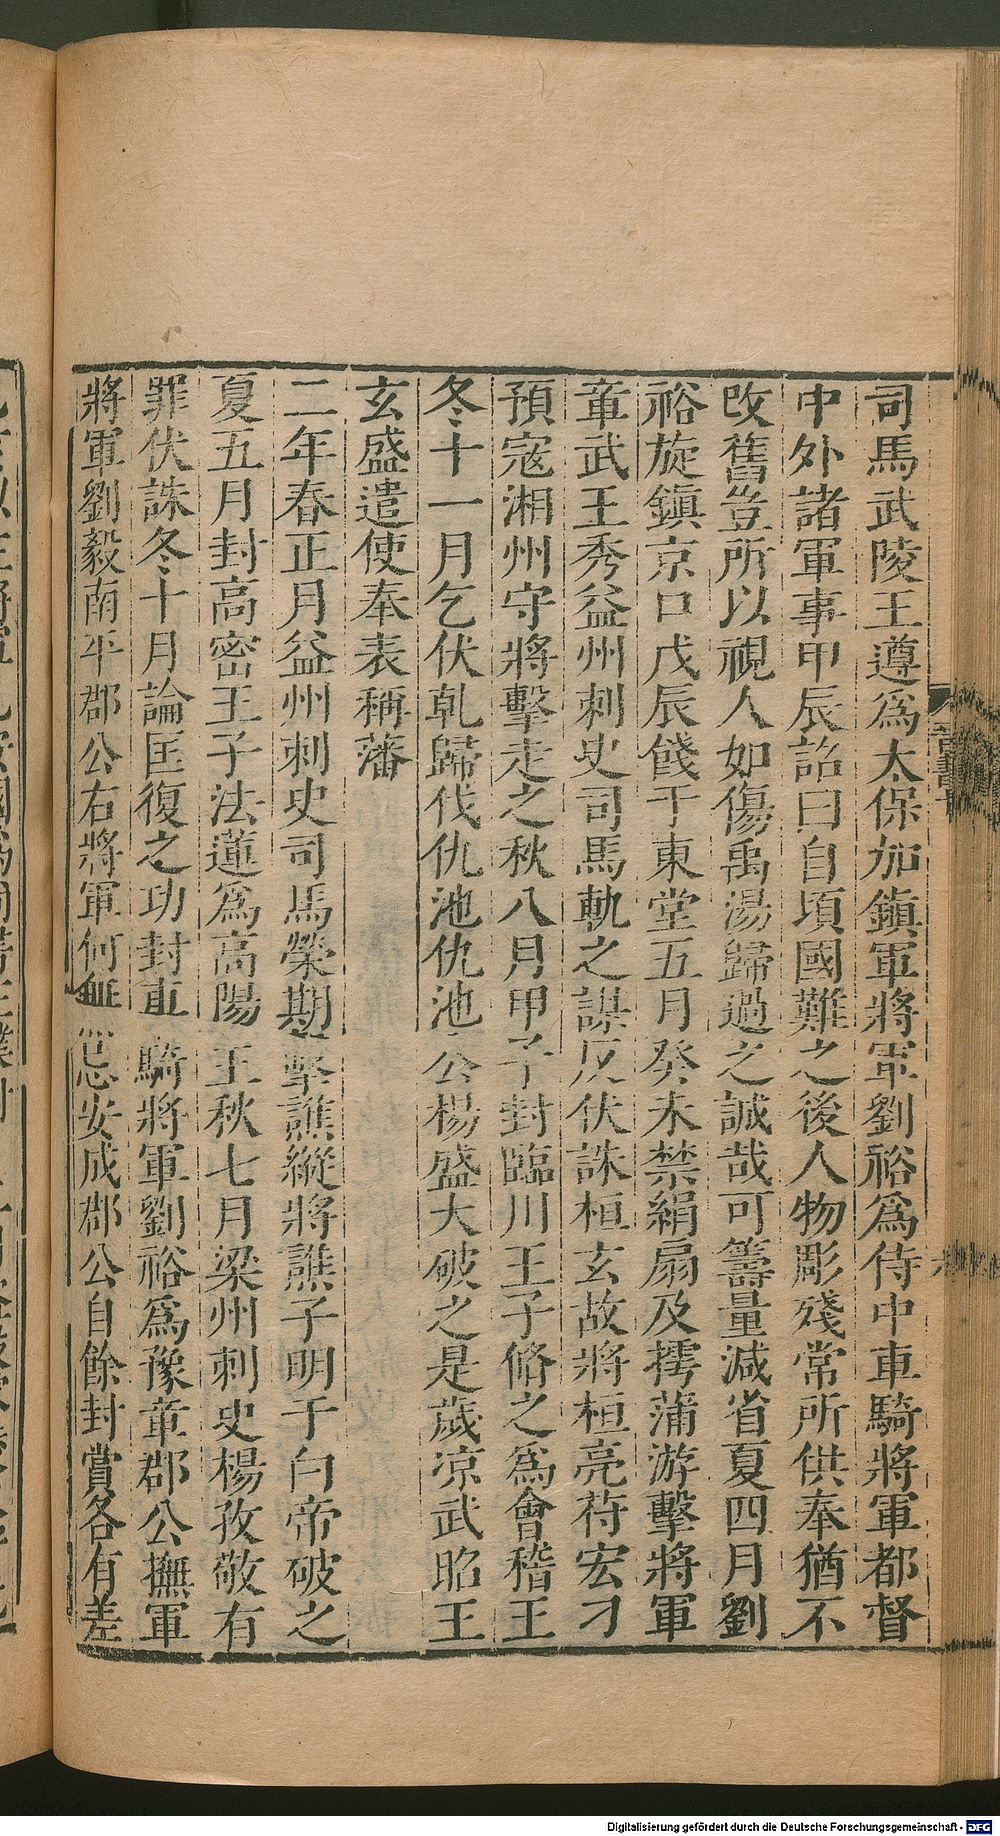 司馬武陵王遵爲太保加鎮軍將軍劉裕爲侍中車騎將軍都督
中外諸軍事甲辰詔曰自頃國難之後人物彫殘常所供奉猶不
改舊豈所以視人如傷禹湯歸過之誠哉可籌量減省夏四月劉
裕旋鎮京口戊辰餞于東堂五月癸未禁絹扇及摴蒲游擊將軍
章武王秀益州刺史司馬軌之謀反伏誅桓玄故將桓亮苻宏刁
預寇湘州守將擊走之秋八月甲子封臨川王子脩之爲會稽王
冬十一月乞伏乾歸伐仇池仇池公楊盛大破之是歲凉武昭王
玄盛遣使奉表稱藩
二年春正月益州刺史司馬榮期擊譙縱將譙子明于白帝破之
夏五月封高密王子法蓮爲高陽王秋七月梁州刺史楊孜敬有
罪伏誅冬十月論匡復之功封車騎將軍劉裕爲豫章郡公撫軍
將軍劉毅南平郡公右將軍何無忌安成郡公自餘封賞各有差
Digitalisierung gefördert durch die Deutsche Forschungsgemeinschaft - DFG